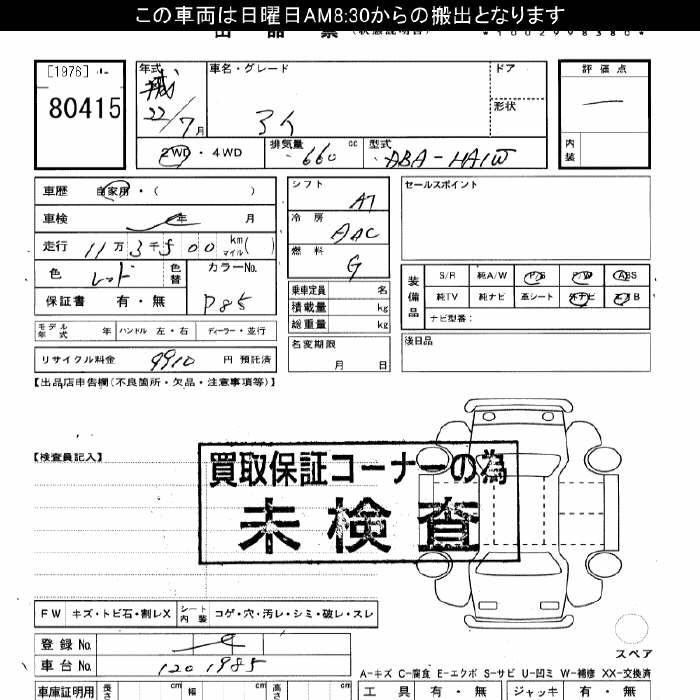 この車両は日曜日AM8:30からの搬出となります
出品票(状態説明書) *1002998380*
[1976]
80415
年式
22/7月
車名・グレード
アイ
ドア
形状
評価点
内装
2WD・4WD
排気量 660 cc
型式 ABA-HA1W
車歴 自家用・( )
車検 年 月
走行 11万3千500 km マイル( )
色 レッド 色替
カラーNo. P85
保証書 有・無
モデル年式 年 ハンドル 左・右 ディーラー・並行
リサイクル料金 9910 円 預託済
シフト AT
冷房 AAC
燃料 G
乗車定員 名
積載量 kg
総重量 kg
名変期限 月 日
セールスポイント
装備品
S/R 純A/W P/S P/W ABS
純TV 純ナビ 革シート 外ナビ エアB
ナビ型番:
後日品
【出品店申告欄(不良箇所・欠品・注意事項等)】
【検査員記入】
買取保証コーナーの為
未検査
FW キズ・トビ石・割レX シート内装 コゲ・穴・汚レ・シミ・破レ・スレ
登録No.
車台No. 1201985
スペア
A-キズ C-腐食 E-エクボ S-サビ U-凹ミ W-補修 XX-交換済
車庫証明用 長さ cm 幅 cm 高さ cm
工具 有・無 ジャッキ 有・無